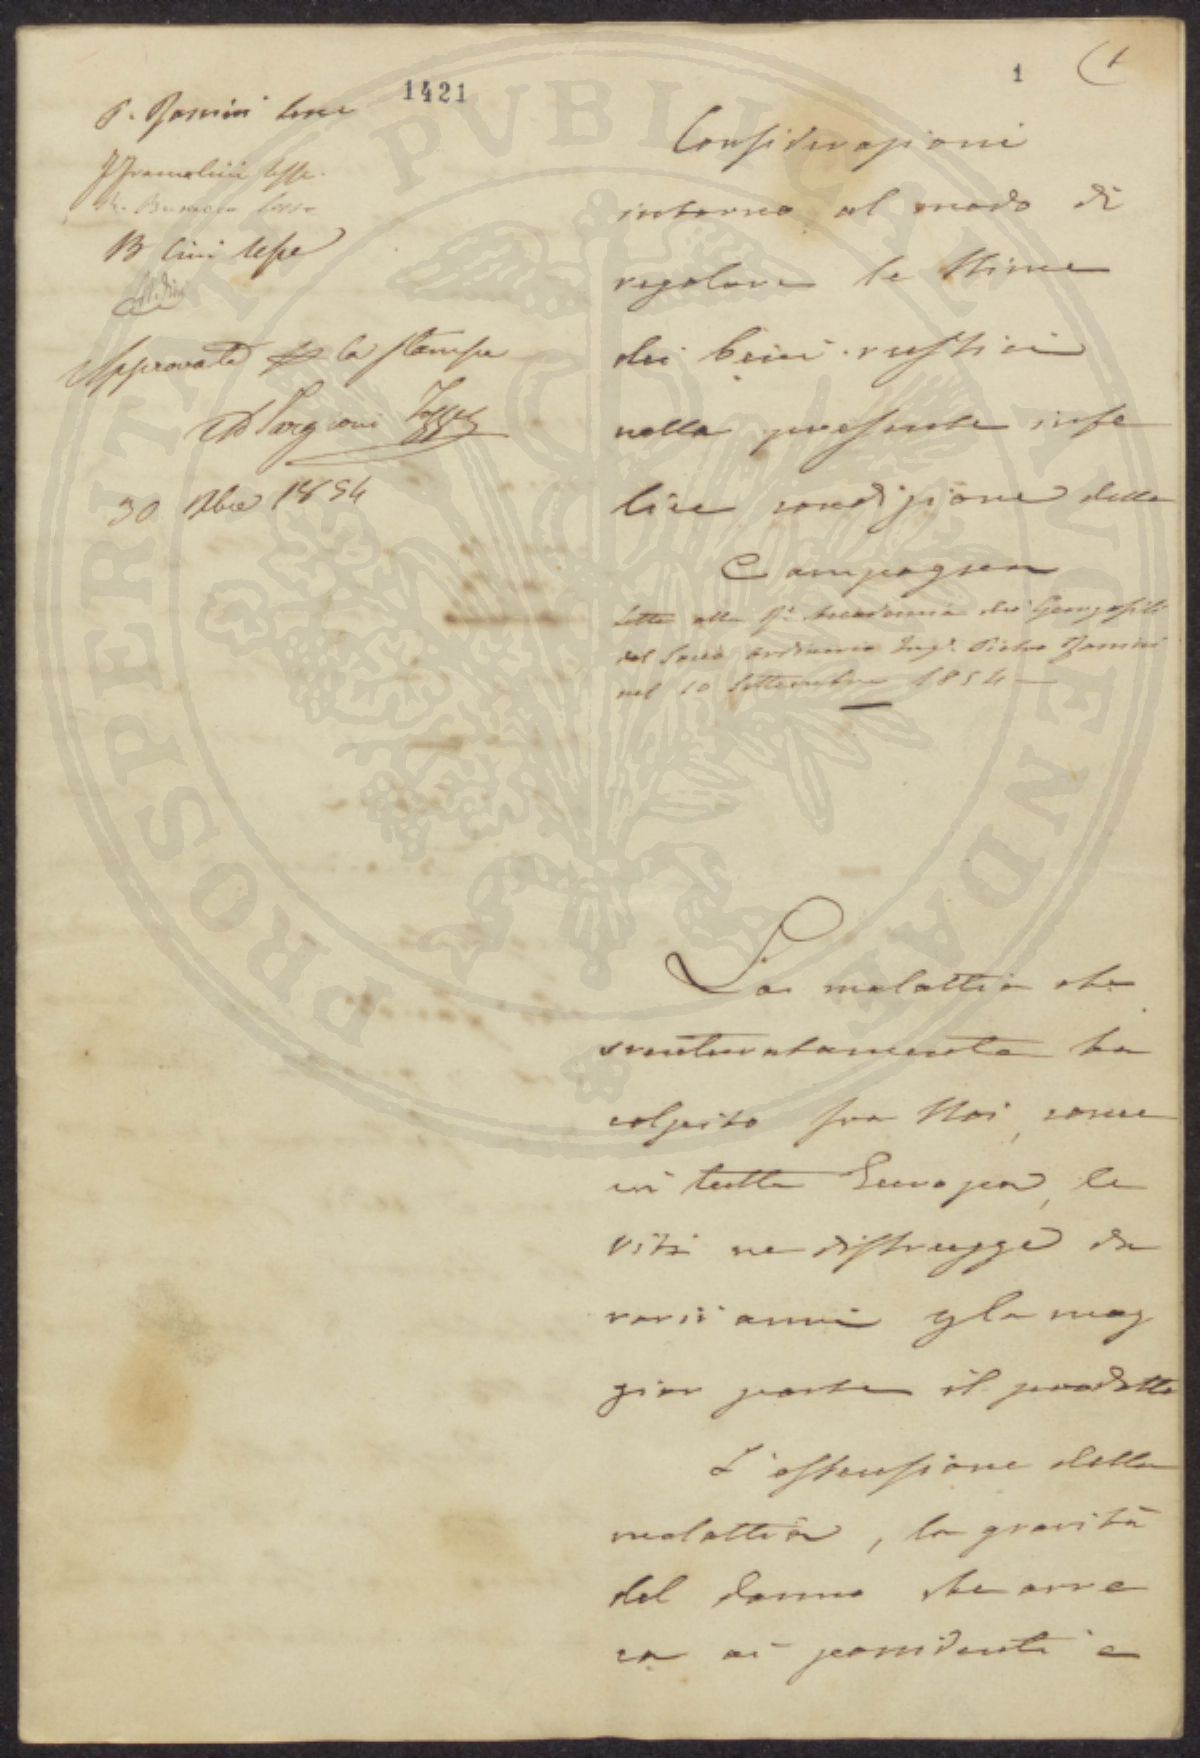 1421
1
1
P. Zannini lesse
lesse.
lesse
B Cini lesse
Approvata per la stampa
A Targioni Tozzetti
30 9bre 1854
Considerazioni
intorno al modo di
regolare le Stime
dei beni rustici
nella presente infe
lice condizione della
Campagna
Letta alla R. Accademia dei Georgofili
dal Socio ordinario Ing. Pietro
nel 10 Settembre 1854 —
La malattia che
sventuratamente ha
colpito fra Noi, come
in tutta Europa, le
Viti ne distrugge da
varii anni p la mag
gior parte il prodotto
L'estensione della
malattia, la gravità
del danno che arre
ca ai possidenti e
PROSPERITATI PUBLICAE AUGENDAE